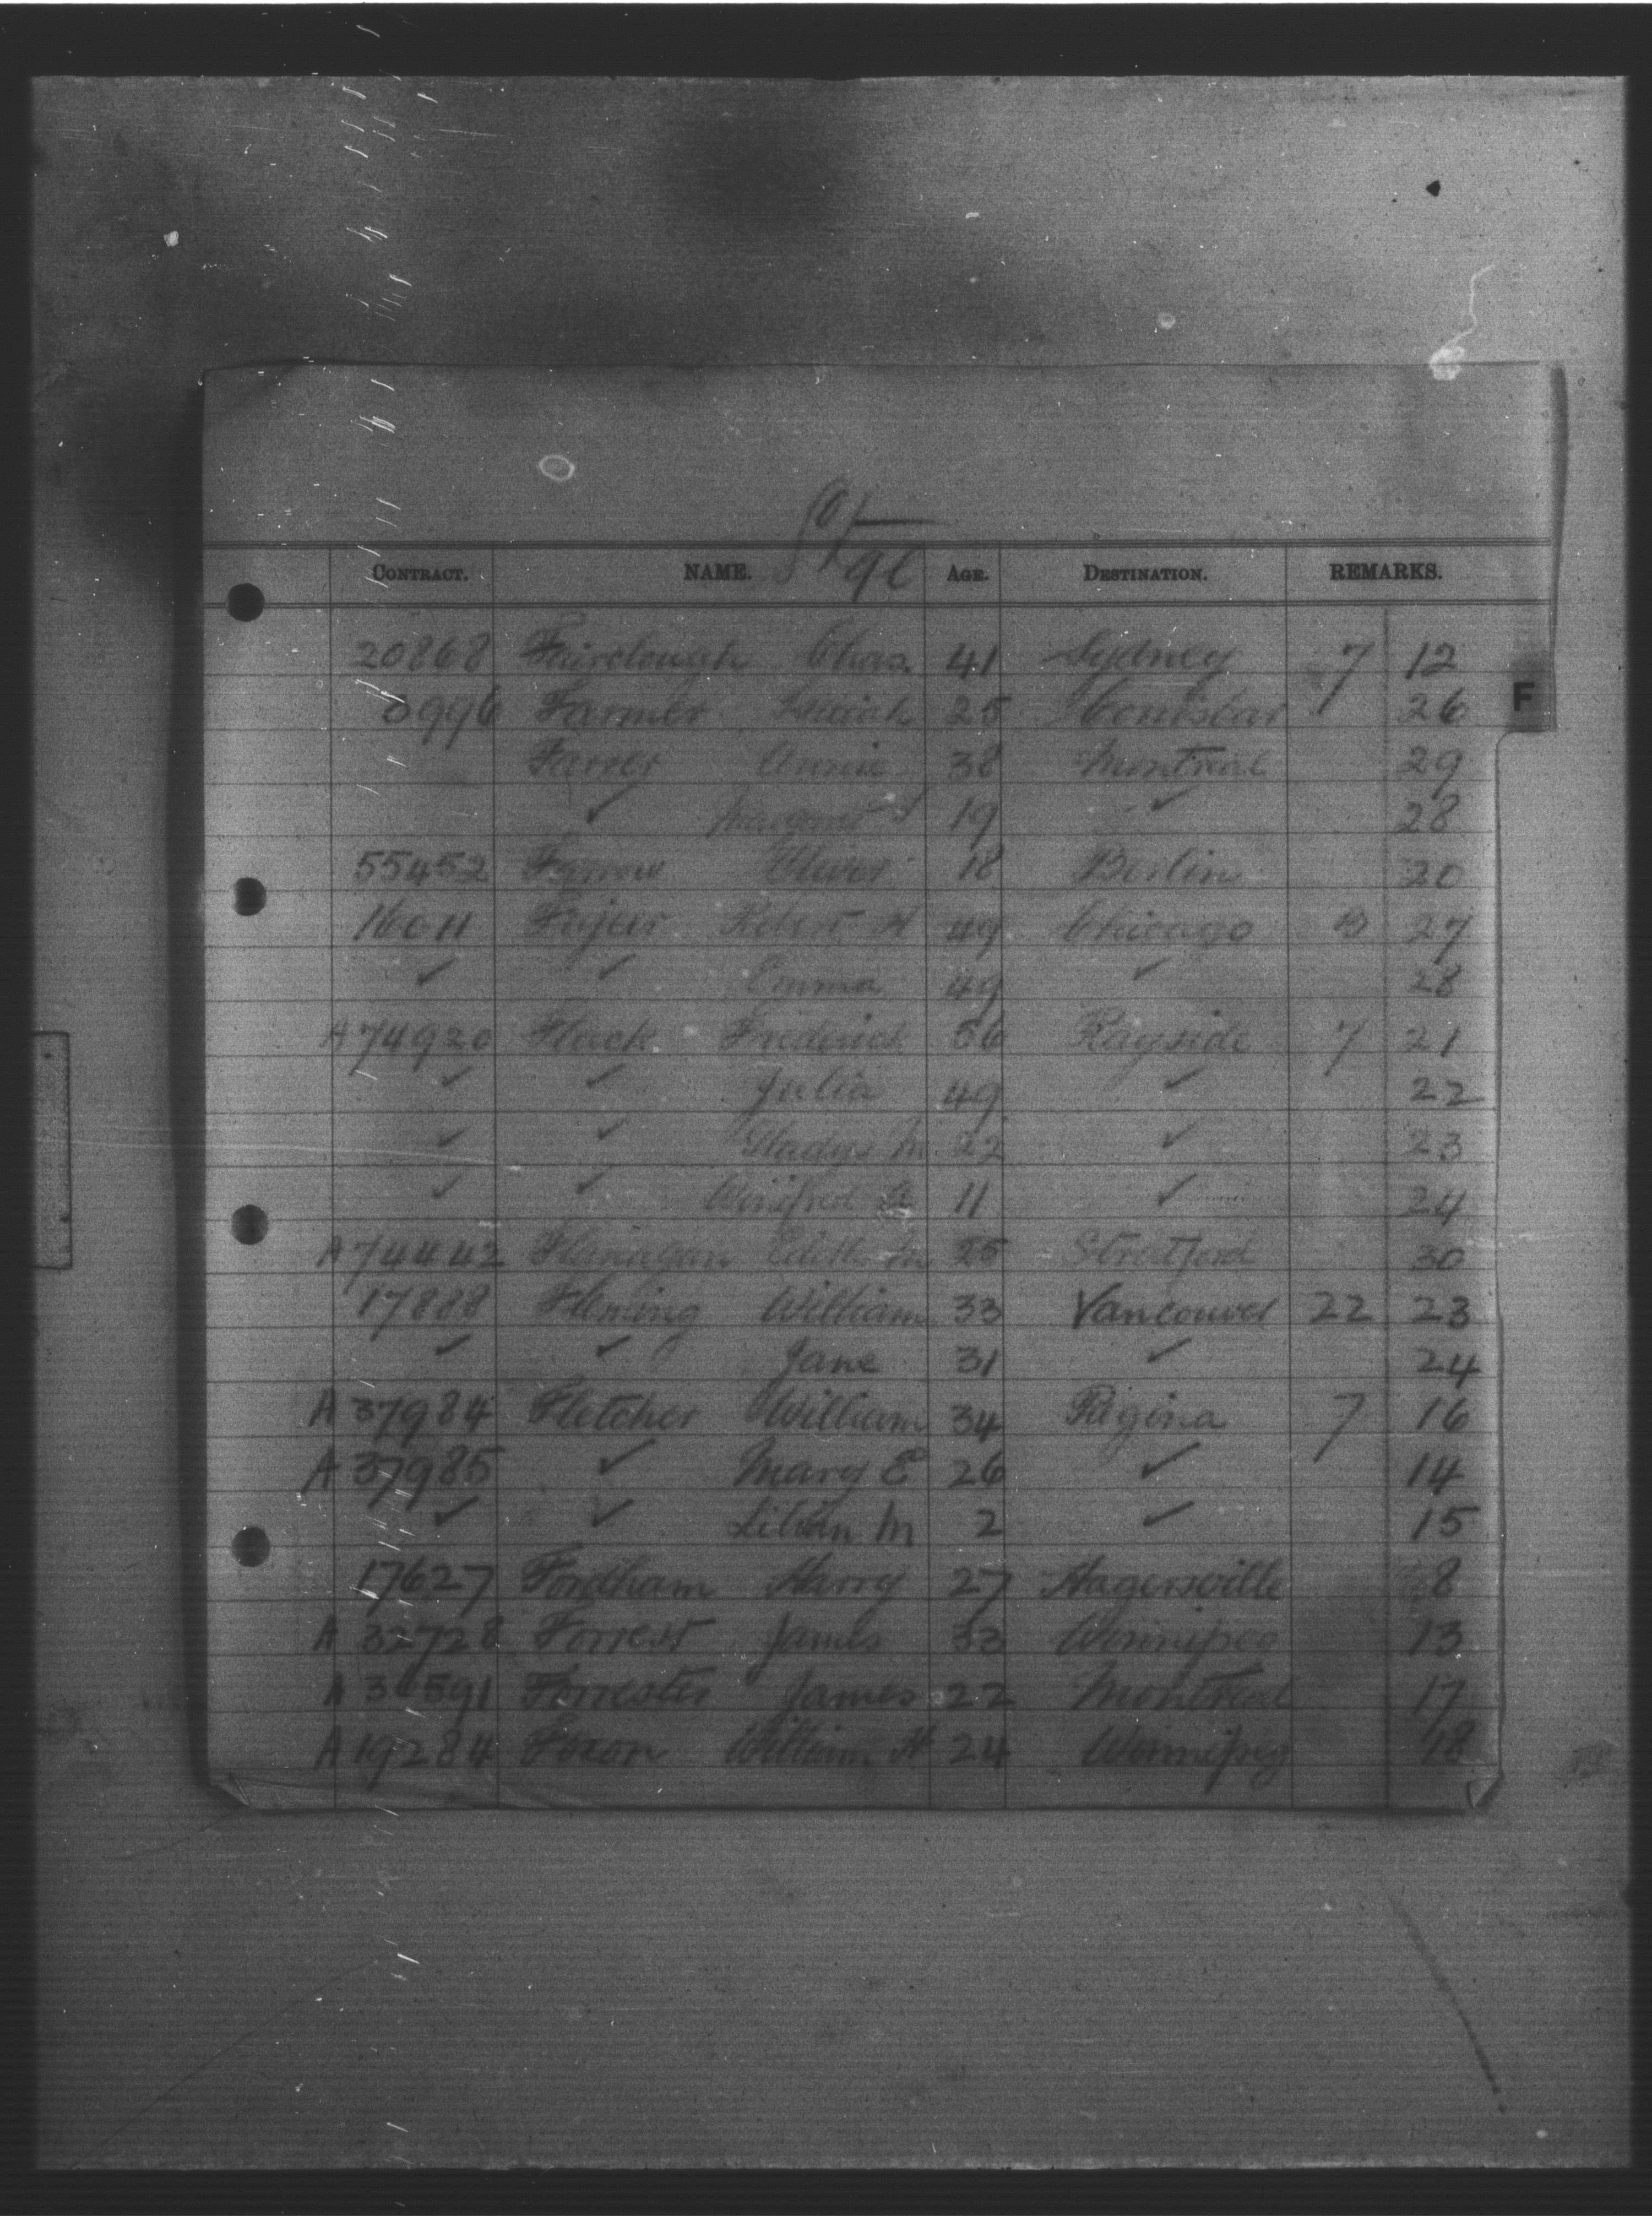 CONTRACT. NAME. AGE. DESTINATION. REMARKS.
20868 Fairclough Chas. 41 Sydney 7 12
Farmer 25 26
F
Farrer Annie 38 Montreal 29
✓ Margaret 19 ✓ 28
55452 Farrow Oliver 18 Berlin 20
16011 Robert H 49 Chicago B 27
✓ ✓ Emma 49 ✓ 28
A 74920 Flack Frederick 56 Rayside 7 21
✓ ✓ Julia 49 ✓ 22
✓ ✓ Gladys M 22 ✓ 23
✓ ✓ Winifred A 11 ✓ 24
A 74442 Flanagan Edith M 25 Stratford 30
17888 Fleming William 33 Vancouver 22 23
✓ ✓ Jane 31 ✓ 24
A 37984 Fletcher William 34 Regina 7 16
A 37985 ✓ Mary E 26 ✓ 14
✓ ✓ Lilian M 2 ✓ 15
17627 Fordham Harry 27 Hagersville 8
A 32728 Forrest James 33 Winnipeg 13
A Forrester James 22 Montreal 17
A 19284 Foxon William H 24 Winnipeg 18